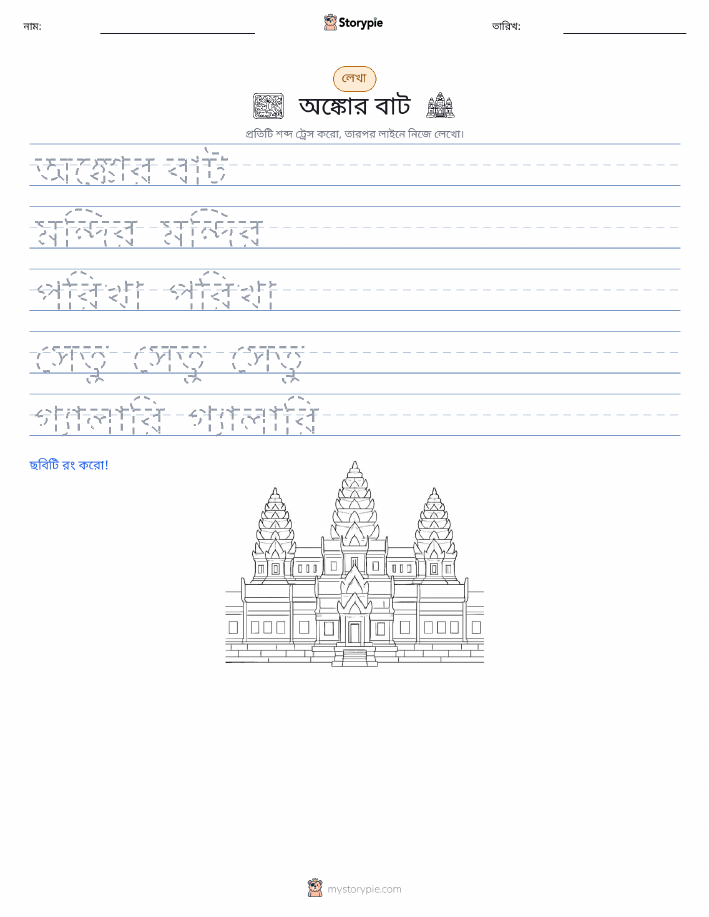 নাম: Storypie তারিখ:
লেখা
অঙ্কোর বাট
প্রতিটি শব্দ ট্রেস করো, তারপর লাইনে নিজে লেখো।
অঙ্কোর বাট
মন্দির মন্দির
পরিখা পরিখা
সেতু সেতু সেতু
গ্যালারি গ্যালারি
ছবিটি রং করো!
mystorypie.com